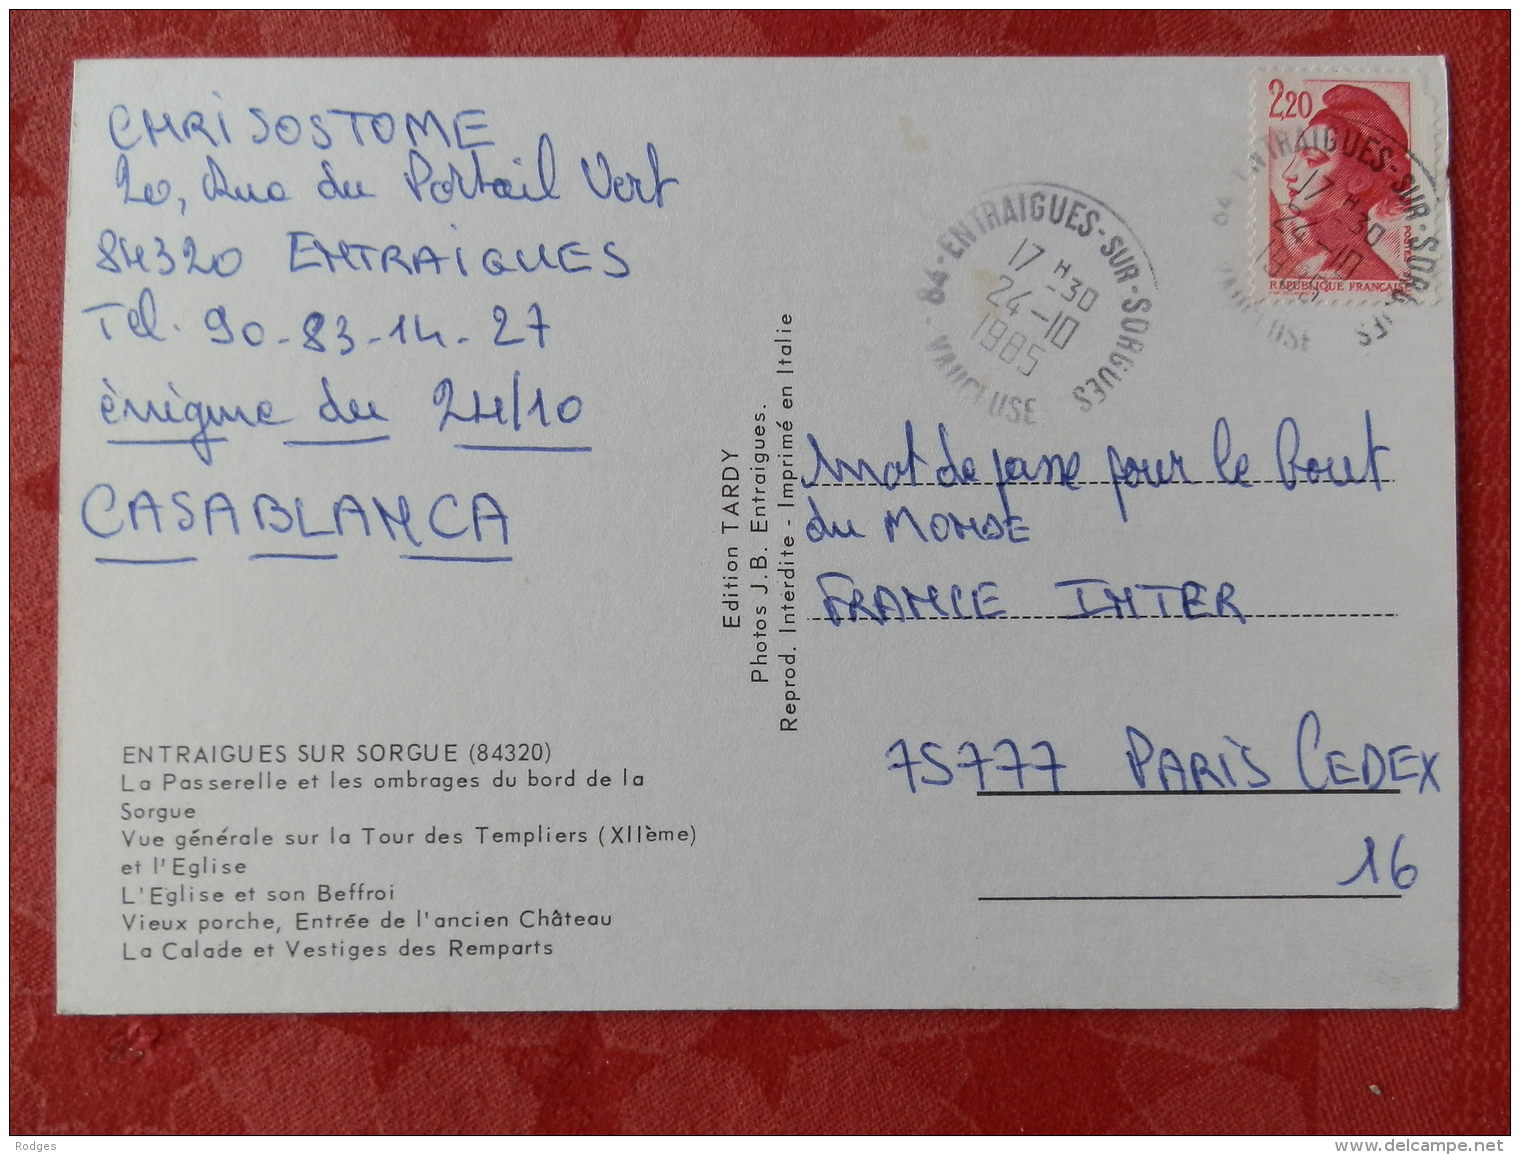 CHRISOSTOME
20, Rue du Portail Vert
84320 ENTRAIGUES
Tel. 90-83-14-27
énigme du 24/10
CASABLANCA
ENTRAIGUES SUR SORGUE (84320)
La Passerelle et les ombrages du bord de la
Sorgue
Vue générale sur la Tour des Templiers (XIIème)
et l'Eglise
L'Eglise et son Beffroi
Vieux porche, Entrée de l'ancien Château
La Calade et Vestiges des Remparts
Edition TARDY
Photos J.B. Entraigues.
Reprod. Interdite - Imprimé en Italie
84-ENTRAIGUES-SUR-SORGUES
VAUCLUSE
17 H 30
24-10
1985
2,20
POSTES
REPUBLIQUE FRANÇAISE
84 ENTRAIGUES-SUR-SORGUES
VAUCLUSE
17 H 30
24-10
1985
Mot de passe pour le bout
du MONDE
FRANCE INTER
75777 PARIS CEDEX
16
Rodges
www.delcampe.net